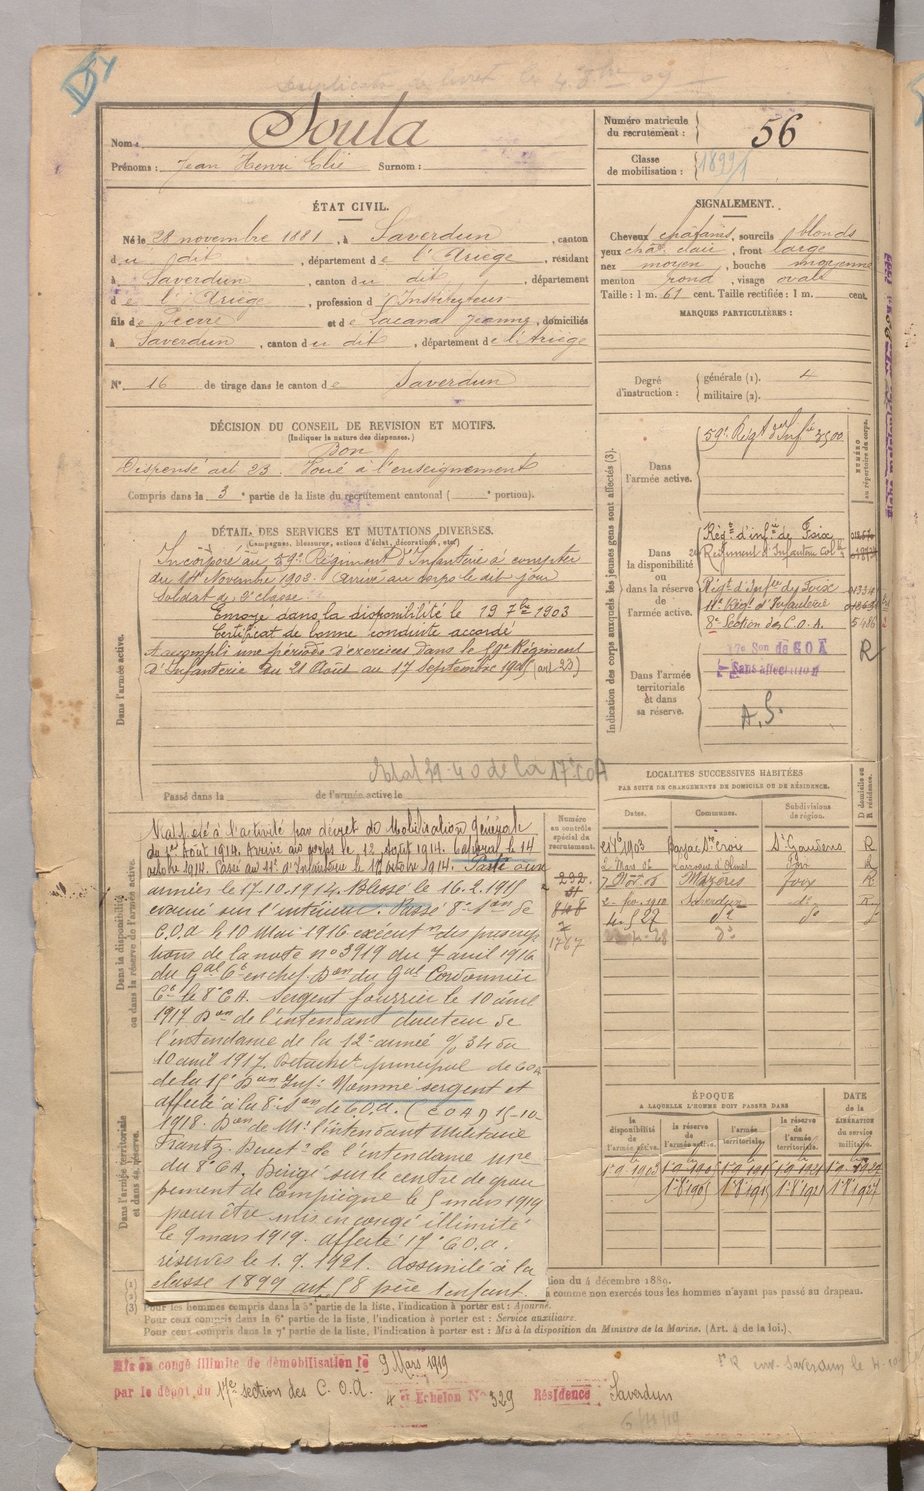 Duplicata de livret le 4
Nom : Soula
Prénoms : Jean Henri Elie Surnom :
Numéro matricule du recrutement : 56
Classe de mobilisation : 1899
ÉTAT CIVIL.
Né le 28 novembre 1881, à Saverdun, canton
du dit, département de l'Ariège, résidant
à Saverdun, canton du dit, département
de l'Ariège, profession d'Instituteur
fils de Pierre et de Lacanal Jeanne, domiciliés
à Saverdun, canton du dit, département de l'Ariège
N° 16 de tirage dans le canton de Saverdun
SIGNALEMENT.
Cheveux châtains, sourcils blonds
yeux chât. clair, front large
nez moyen, bouche moyenne
menton rond, visage ovale
Taille : 1 m. 61 cent. Taille rectifiée : 1 m. cent.
MARQUES PARTICULIÈRES :
Degré d'instruction : générale (1). 4
militaire (2).
DÉCISION DU CONSEIL DE REVISION ET MOTIFS.
(Indiquer la nature des dispenses.)
Bon
Dispensé art 23. Voué à l'enseignement
Compris dans la 3e partie de la liste du recrutement cantonal ( e portion).
DÉTAIL DES SERVICES ET MUTATIONS DIVERSES.
(Campagnes, blessures, actions d'éclat, décorations, etc.)
Dans l'armée active.
Incorporé au 59e Régiment d'Infanterie à compter
du 14 Novembre 1902. Arrivé au corps le dit jour
Soldat de 2e classe
Envoyé dans la disponibilité le 19 7bre 1903
Certificat de bonne conduite accordé
Accompli une période d'exercices dans le 59e Régiment
d'Infanterie du 21 Août au 17 Septembre (art 23)
de la 17e COA
Passé dans la de l'armée active le
Indication des corps auxquels les jeunes gens sont affectés (3).
NUMÉRO au répertoire du corps.
Dans l'armée active.
59e Régt d'Infie 3500
Dans la disponibilité ou dans la réserve de l'armée active.
Régt d'infie de Foix
24 Régiment d'Infanterie Colle
Régt d'Infie de Foix
11e Régt d'Infanterie
8e Section de C.O.A. 5416
Dans l'armée territoriale et dans sa réserve.
17e Son de COA R
Sans affectation
A.S.
LOCALITÉS SUCCESSIVES HABITÉES
PAR SUITE DE CHANGEMENTS DE DOMICILE OU DE RÉSIDENCE.
Dates. Communes. Subdivisions de région. D domicile ou R résidence.
1903 Ste Croix St Gaudens R
2 Mars 06 Laroque d'Olmes Foix R
7 Nov. 06 Mazères Foix R
2 1910 Saverdun do
do do
28 do
Dans la disponibilité ou dans la réserve de l'armée active.
Dans l'armée territoriale et dans sa réserve.
Numéro au contrôle spécial du recrutement.
232
848
1767
Rappelé à l'activité par décret de Mobilisation Générale
du 1er Août 1914. Arrivé au corps le 12 Août 1914. Caporal le 14
octobre 1914. Passé au 11e d'Infanterie le 16 octobre 1914. Parti aux
armées le 17.10.1914. Blessé le 16.2.1915
évacué sur l'intérieur. Passé 8e Son de
C.O.A le 10 Mai 1916 exécutn des prescrip
tions de la note no 3919 du 7 avril 1916
du Gal Ct en chef. Don du Gal Cordonnier
Ct le 8e CA. Sergent fourrier le 10 avril
1917 Don de l'intendant directeur de
l'intendance de la 12e armée o/ 34 du
10 avril 1917. Détachet principal de COA
de la 15e Don Inf. Nommé sergent et
affecté à la 8e Son de C.O.A. (COA) 15-10
1918. Don de Mr l'intendant Militaire
Frantz. Direct. de l'intendance
du 8e CA. Dirigé sur le centre de grou
pement de Compiègne le 5 mars 1919
pour être mis en congé illimité
le 9 mars 1919. Affecté 17e C.O.A.
réserves le 1.9.1921. Assimilé à la
classe 1899 art 58 père 1 enfant.
ÉPOQUE
A LAQUELLE L'HOMME DOIT PASSER DANS
la disponibilité de l'armée active. la réserve de l'armée active. l'armée territoriale. la réserve de l'armée territoriale. DATE de la LIBÉRATION du service militaire.
1er 9 1903
1er 8 1905 1er 8 1915 1er 8 1921 1er 8 1927
(1)
(2)
(3)
tion du 4 décembre 1889.
à comme non exercés tous les hommes n'ayant pas passé au drapeau.
Pour les hommes compris dans la 5e partie de la liste, l'indication à porter est : Ajourné.
Pour ceux compris dans la 6e partie de la liste, l'indication à porter est : Service auxiliaire.
Pour ceux compris dans la 7e partie de la liste, l'indication à porter est : Mis à la disposition du Ministre de la Marine. (Art. 4 de la loi.).
Mis en congé illimité de démobilisation le 9 Mars 1919
par le dépôt du 17e section des C.O.A. 4er Echelon N° 329 Résidence Saverdun
Saverdun le